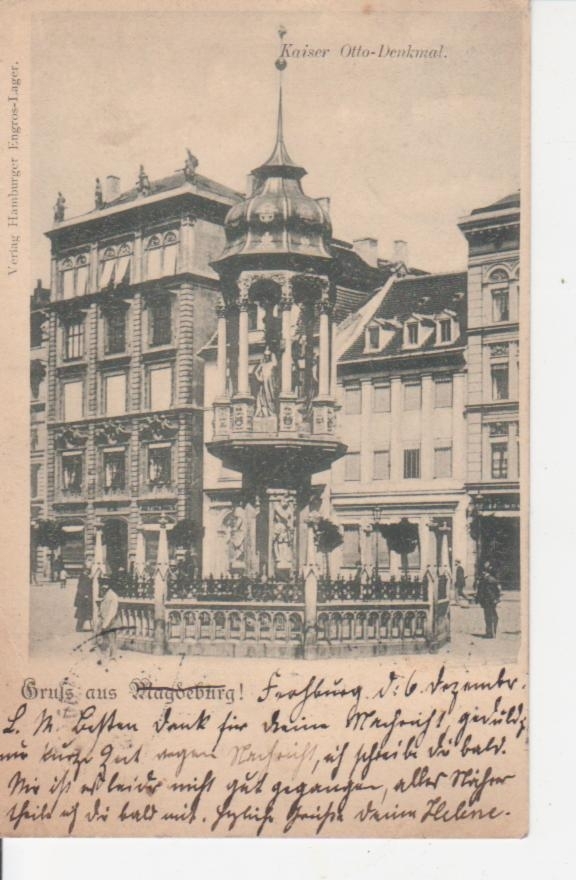 Kaiser Otto-Denkmal.
Verlag Hamburger Engros-Lager.
Gruß aus Magdeburg! Frohburg d. 6. Dezember.
L. M. Besten Dank für Deine Nachricht! geduld
nur kurze Zeit wegen Nachricht, ich schreibe dir bald.
Mir ist es leider nicht gut gegangen, alles Näher
theile ich dir bald mit. Herzliche Grüße deine Helene.